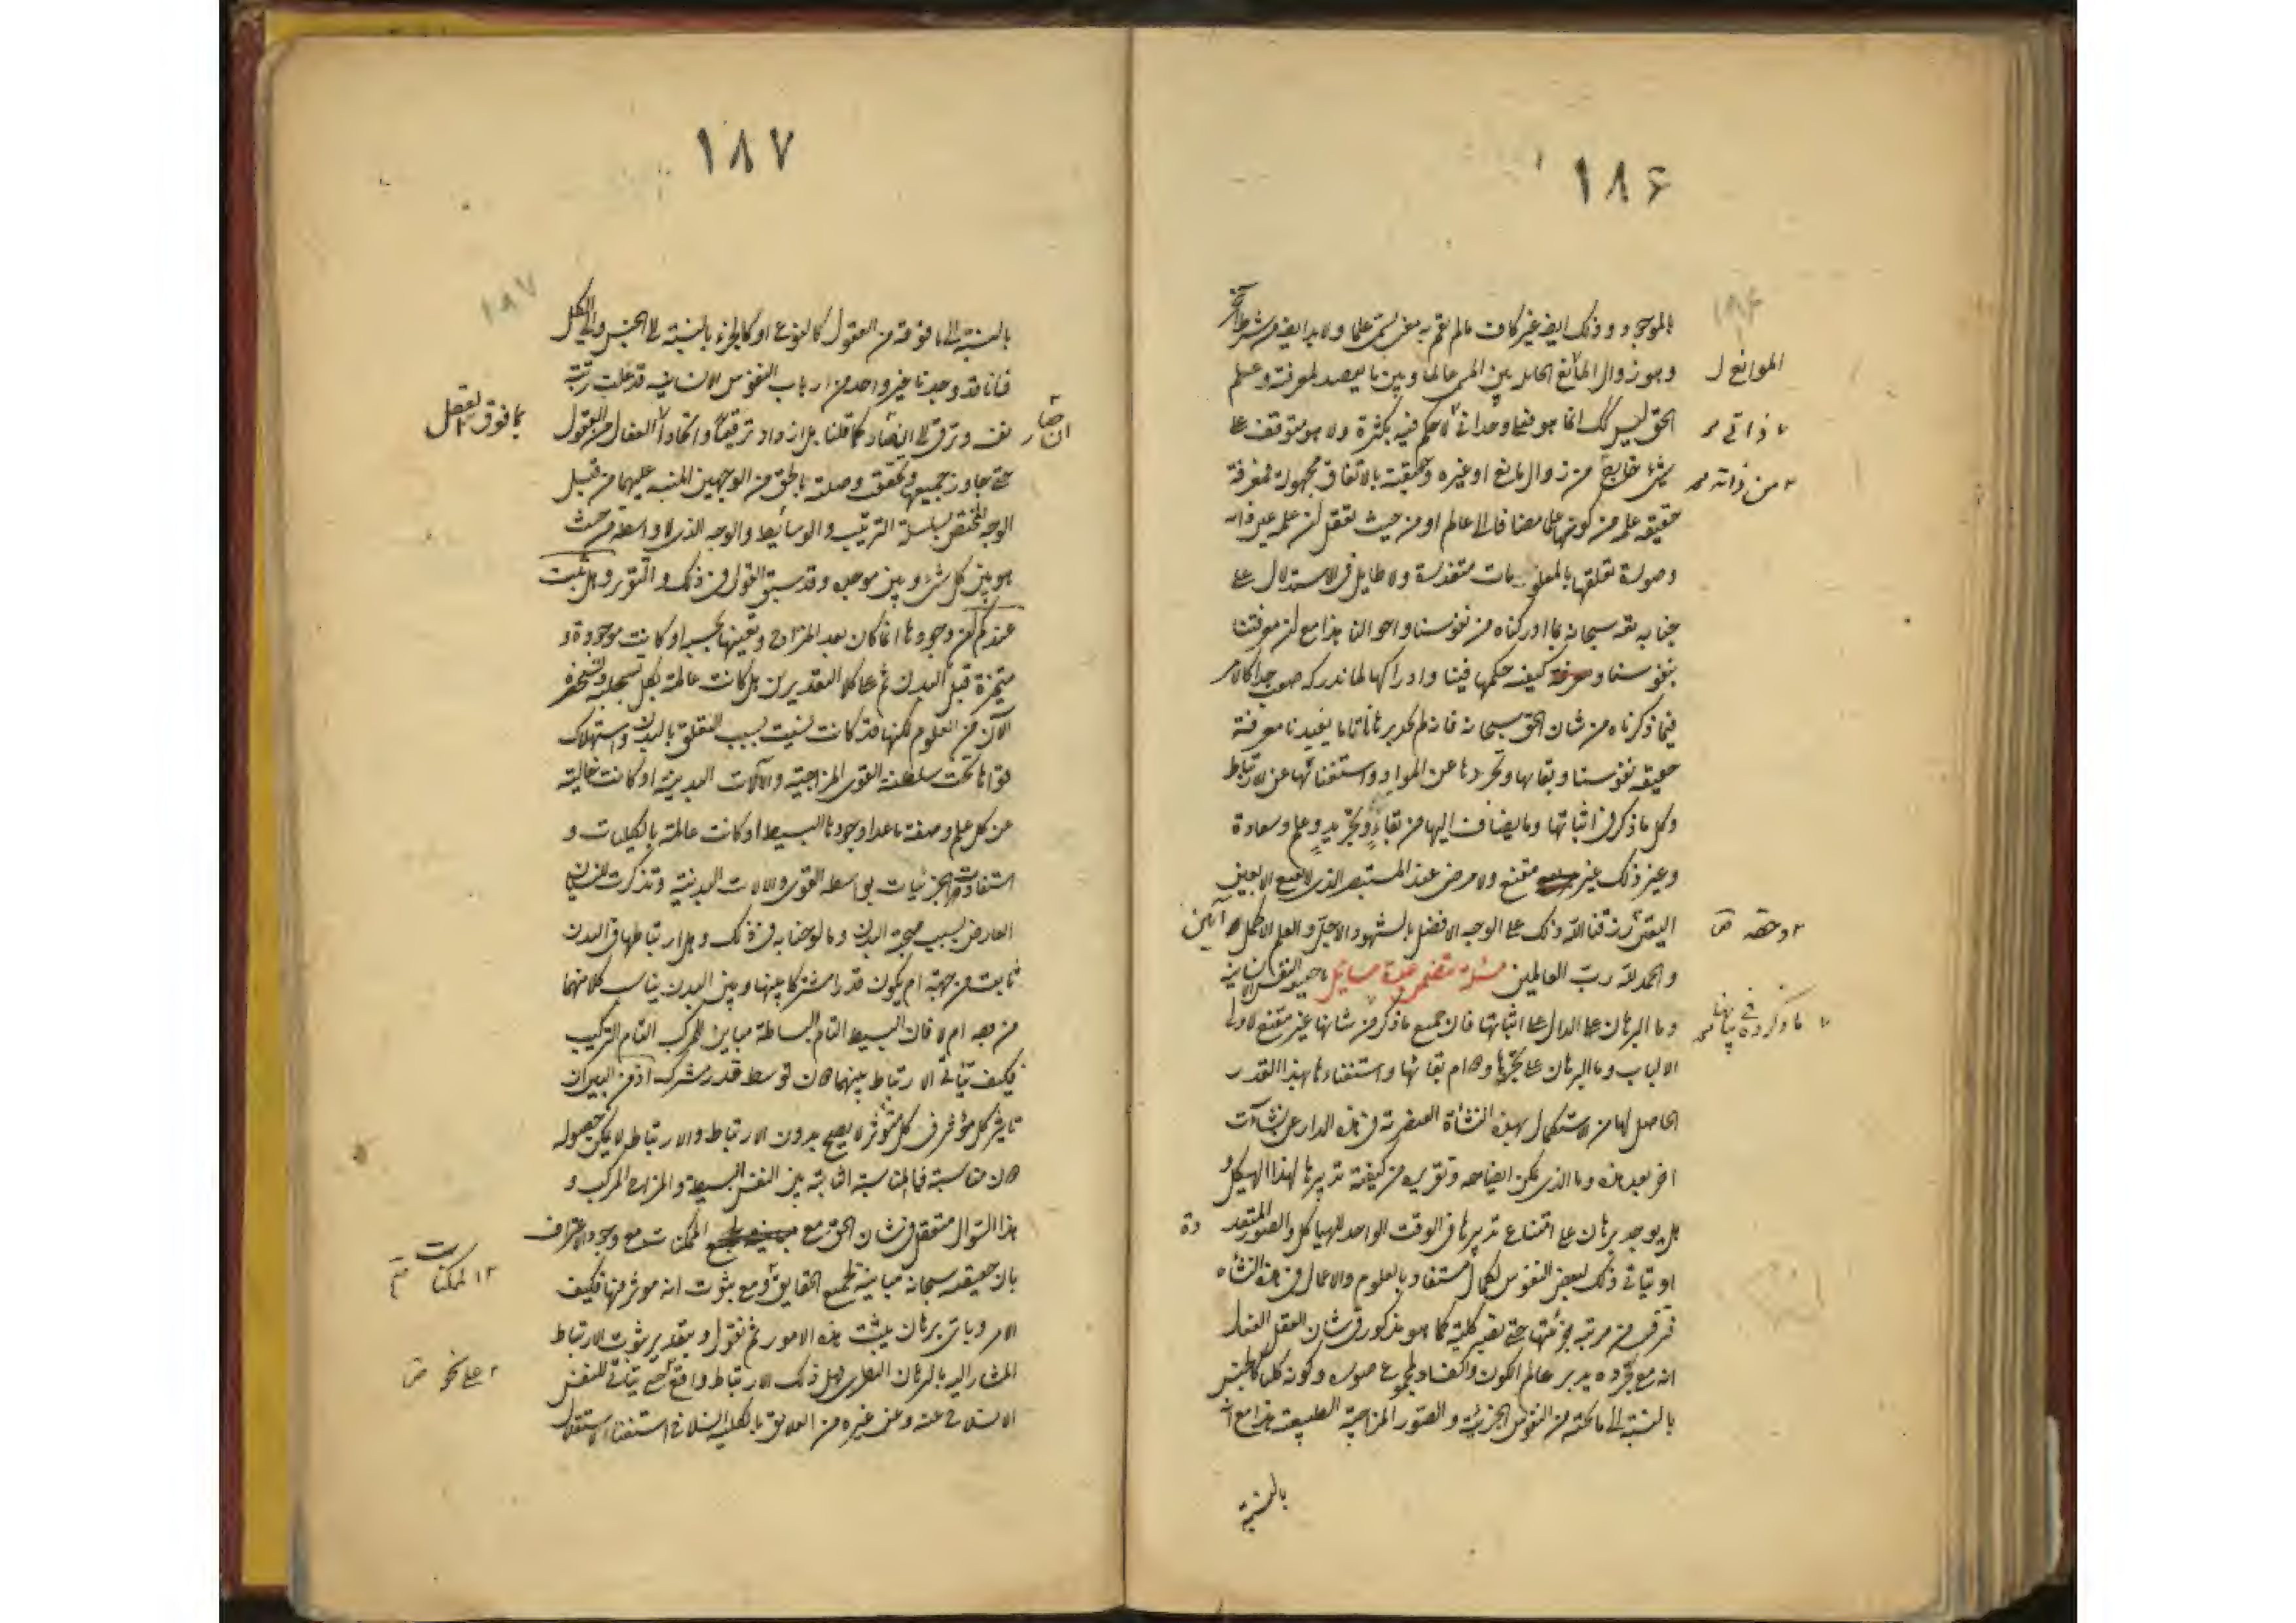 ١٨۶
بالموجود وذلك ايضا غير كاف مالم يقم به معنى يسمى علما ولا بد ايضا من شرط آخر
وهو زوال المانع الحائل بين المسمى عالما وبين ما يقصد لمعرفته وعلم
الموانع ل
الحق ليس كك انما هو فيما وحدانى لا حكم فيه لكثرة ولا هو متوقف على
ذاتى
شئ خارج من زوال مانع او غيره وحقيقته بالاتفاق مجهولة فمعرفة
من ذاته
حقيقة علمه من كونها على مضافا الى عالم او من حيث تعقل ان علمه عين ذاته
وصورة تعلقها بالمعلومات متعذرة ولا طايل فى الاستدلال على
جنابه تعه سبحانه بما ادركناه من نفوسنا واحوالنا هذا مع ان معرفتنا
بنفوسنا و كيفية حكمها فينا وادراكها لما تدركه صعب جدا كالامر
فيما ذكرناه من شان الحق سبحانه فانه لم نجد برهانا تاما يفيدنا معرفة
حقيقة نفوسنا وبقاءها وتجردها عن المواد واستغنائها عن الارتباط
وكل ما ذكر فى اثباتها وما يضاف اليها من بقاء وتجريد وعلم وسعادة
وغير ذلك غير مقنع ولا مرضى عند المستبصر الذى لا يقنع الا بعين
اليقين رزقنا الله ذلك على الوجه الافضل بالشهود الاجلى والعلم الاكمل آمين
وحقه
والحمد لله رب العالمين مسئلة تتضمن عدة مسائل ما حقيقة النفس الانسانية
وما البرهان على الدال على اثباتها فان جميع ما ذكر من شانها غير مقنع لاولى
ما ذكروه فى بيانها
الالباب وما البرهان على تجردها ودوام بقائها واستغناءها بهذا القدر
الحاصل لها من الاستكمال بهذه النشأة العنصرية فى هذه الدار عن نشآت
اخر بعد هذه وما الذى يمكن ايضاحه وتقريره من كيفية تدبيرها لهذا الهيكل و
هل يوجد برهان على امتناع تدبيرها فى الوقت الواحد للهياكل والصور المتعددة
او يتأتى ذلك لبعض النفوس لكمال مستفاد بالعلوم والاعمال فى هذه النشأه
فترقى من مرتبة جزئيتها حتى تصير كلية كما هو مذكور فى شان العقل الفعال
انه مع تجرده يدبر عالم الكون والفساد بمجموع صوره وكونه كليا كالجنس
بالنسبة الى ما تحته من النفوس الجزئية والصور المزاجية الطبيعية هذا مع انه
بالنسبة
١٨٧
بالنسبة الى ما فوقه من العقول كالنوع او كالجزء بالنسبة الى الجنس والى الكل
فانا قد وجدنا غير واحد من ارباب النفوس الانسانية قد علت رتبته
نفسه وترقى الى كما قلنا بل ازداد ترقيا واتحادا العقل من العقول
بما فوق العقل
حتى تجاوز جميعها وتحقق وصلته بالحق من الوجهين المنبه عليهما من قبل
الوجه المختص بسلسلة الترتيب والوسائط والوجه الذى لا واسطة من حيث
هو بين كل شئ وبين موجده وقد سبق القول فى ذلك والتقرير وهل ثبت
عندكم ان وجودها انما كان بعد المزاج وتعينها بحسبه او كانت موجودة و
متميزة قبل البدن ثم على كلا التقديرين هل كانت عالمة بكل ما تستجليه وتستحضره
الآن من العلوم لكنها قد كانت نسيت بسبب التعلق بالبدن واستهلاك
قواها تحت سلطنة القوى المزاجية والآلات البدنية او كانت خالية
عن كل علم وصفة ما عدا وجودها البسيط او كانت عالمة بالكليات و
استفادت الجزئيات بواسطة القوى والالات البدنية وتذكرت النسيان
العارض بسبب صحبة البدن وما لوحنا به فى ذلك وهل ارتباطها فى البدن
ثابت من جهة ام يكون قدرا مشتركا بينها وبين البدن يناسب كلا منهما
من وجه ام لا فان البسيط التام البساطة مباين للمركب التام التركيب
فكيف يتأتى الارتباط بينهما دون توسط قدر مشترك اذ من البين ان
تاثير كل مؤثر فى كل متأثر لا يصح بدون الارتباط والارتباط لا يمكن حصوله
دون مناسبة فما المناسبة الثابتة بين النفس البسيطة والمزاج المركب و
هذا السؤال متعقل فى شان الحق مع الممكنات مع وجود الاعتراف
بان حقيقته سبحانه مباينة لجميع الحقايق ومع ثبوت انه مؤثر فيها فكيف
الممكنات
الامر وباى برهان يثبت هذه الامور ثم نقول وبتقدير ثبوت الارتباط
المشار اليه بالبرهان النظرى هل ذلك الارتباط واقع يتأتى للنفس
على نحو
الانسلاخ عنه وعن غيره من العلايق بالكلية انسلاخ استغناء واستقلال